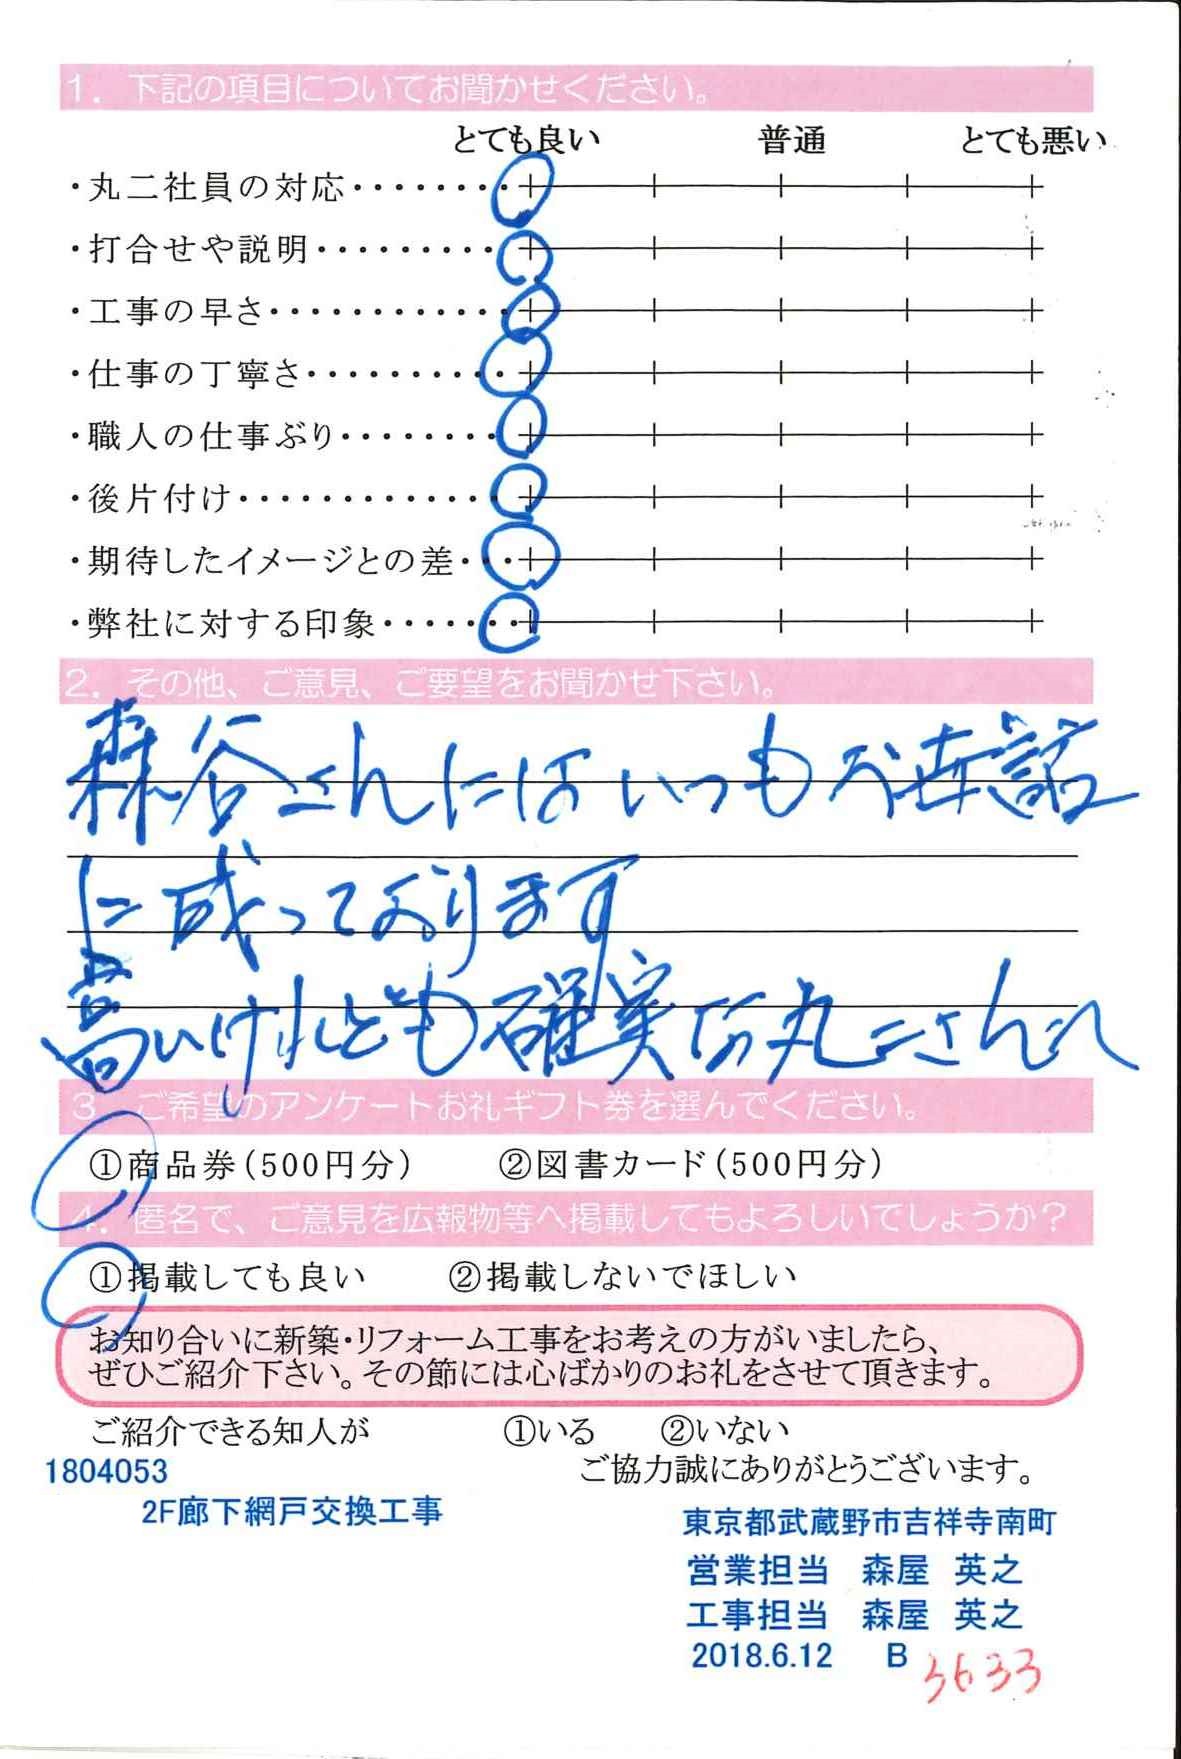 1. 下記の項目についてお聞かせください。
とても良い 普通 とても悪い
・丸二社員の対応・・・・・・・・
・打合せや説明・・・・・・・・・・
・工事の早さ・・・・・・・・・・・・・
・仕事の丁寧さ・・・・・・・・・・
・職人の仕事ぶり・・・・・・・・
・後片付け・・・・・・・・・・・・・
・期待したイメージとの差・・・
・弊社に対する印象・・・・・・・
2. その他、ご意見、ご要望をお聞かせ下さい。
森谷さんにはいつもお世話
に成っております
高いけれども確実な丸二さんへ
3. ご希望のアンケートお礼ギフト券を選んでください。
①商品券(500円分) ②図書カード(500円分)
4. 匿名で、ご意見を広報物等へ掲載してもよろしいでしょうか?
①掲載しても良い ②掲載しないでほしい
お知り合いに新築・リフォーム工事をお考えの方がいましたら、
ぜひご紹介下さい。その節には心ばかりのお礼をさせて頂きます。
ご紹介できる知人が ①いる ②いない
ご協力誠にありがとうございます。
1804053
2F廊下網戸交換工事
東京都武蔵野市吉祥寺南町
営業担当 森屋 英之
工事担当 森屋 英之
2018.6.12 B 3633